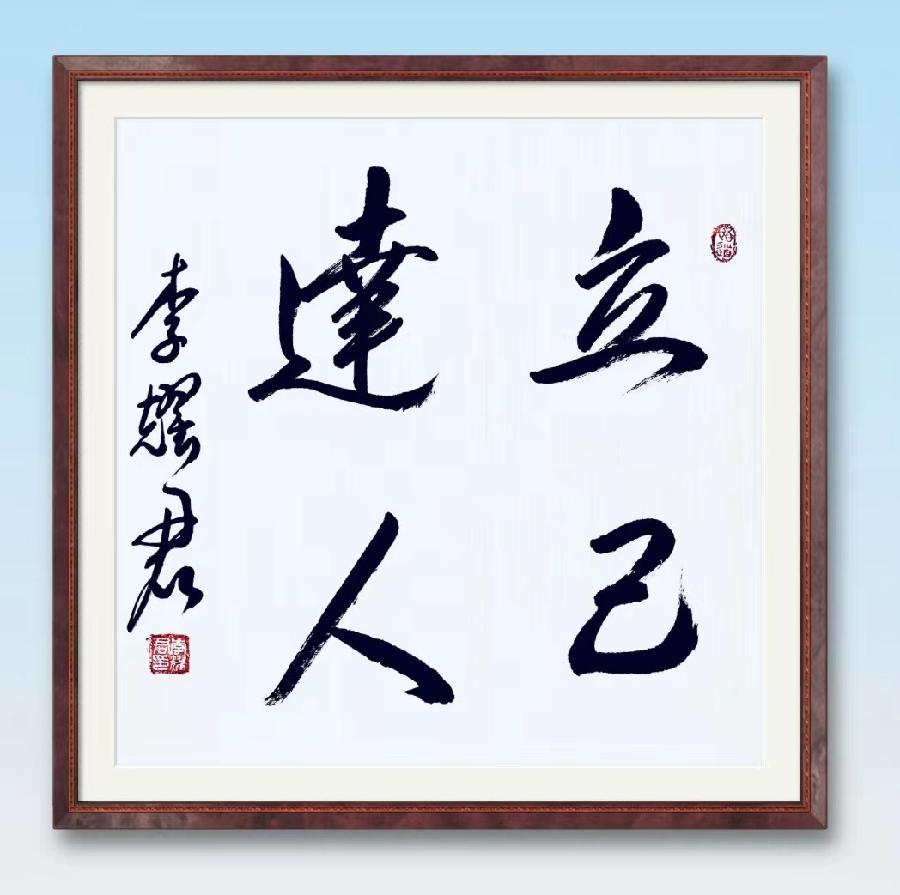 立己
達人
李耀君